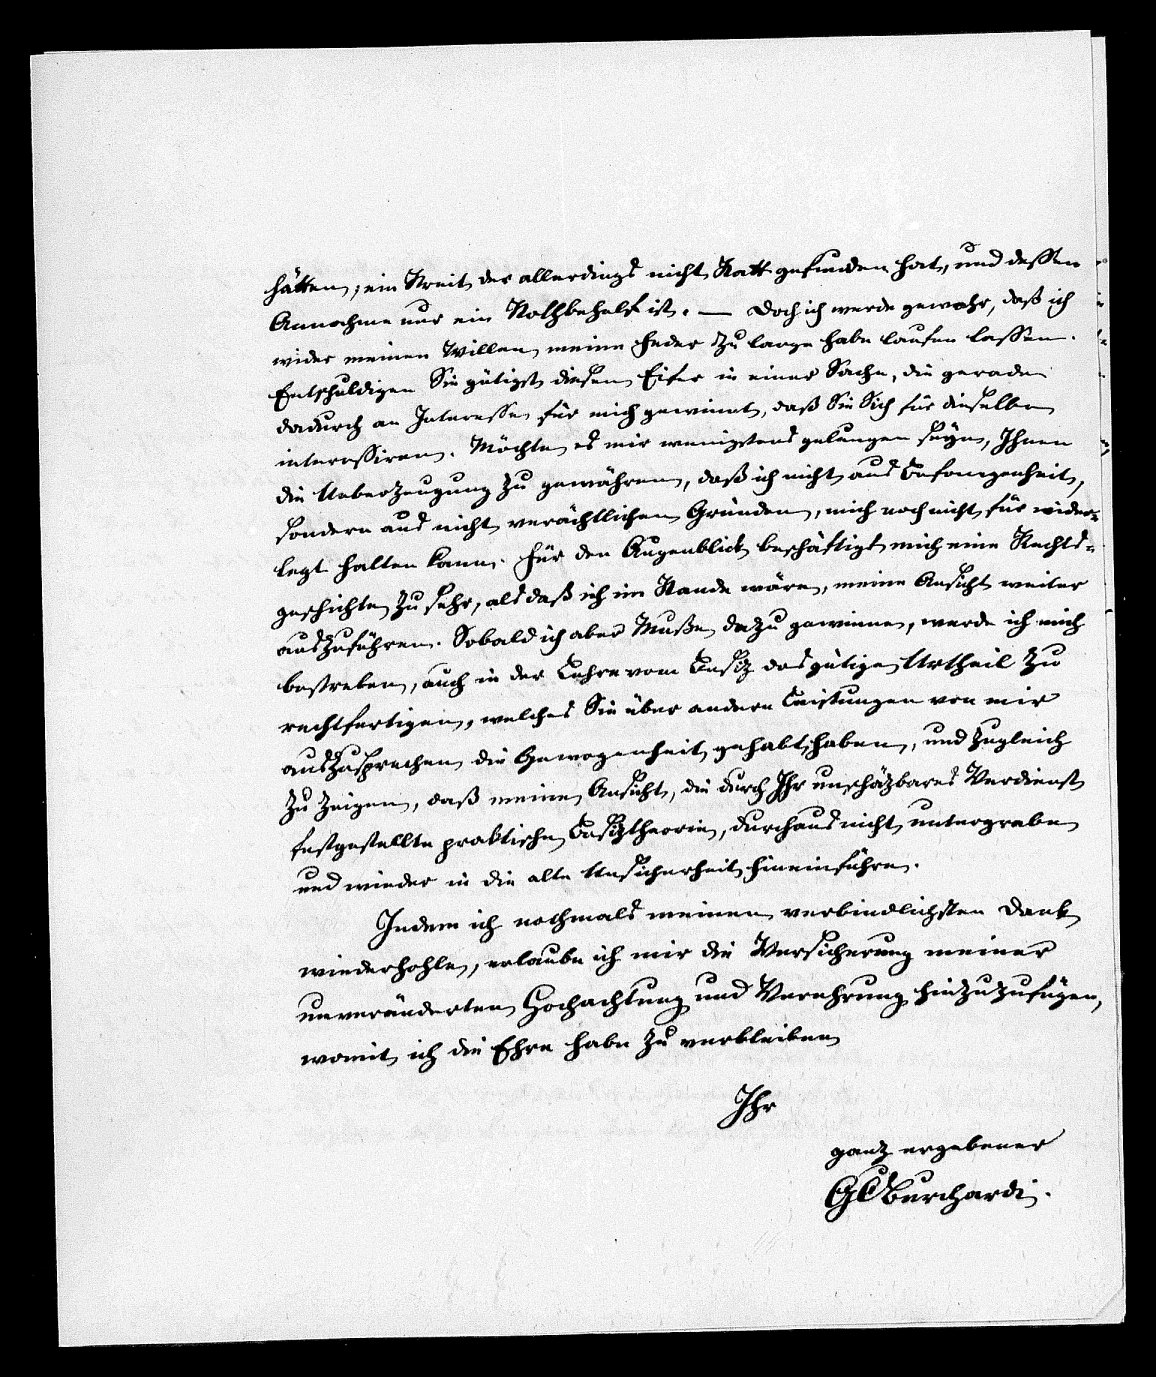 hätten, ein Streit der allerdings nicht Statt gefunden hat, und dessen
Annahme nur ein Nothbehelf ist. — Doch ich werde gewahr, daß ich
wider meinen Willen meine Feder zu lange habe laufen lassen.
Entschuldigen Sie gütigst diesen Eifer in einer Sache, die gerade
dadurch an Interesse für mich gewinnt, daß Sie Sich für dieselbe
interessiren. Möchte es mir wenigstens gelungen seyn, Ihnen
die Ueberzeugung zu gewähren, daß ich nicht aus Befangenheit,
sondern aus nicht verächtlichen Gründen, mich noch nicht für wider=
legt halten kann. Für den Augenblick beschäftigt mich eine Rechts=
geschichte zu sehr, als daß ich im Stande wäre, meine Ansicht weiter
auszuführen. Sobald ich aber Muße dazu gewinne, werde ich mich
bestreben, auch in der Lehre vom Besiz das gütige Urtheil zu
rechtfertigen, welches Sie über andere Leistungen von mir
auszusprechen die Gewogenheit gehabt haben, und zugleich
zu zeigen, daß meine Ansicht, die durch Ihr unschäzbares Verdienst
festgestellte praktische Besiztheorie, durchaus nicht untergrabe
und wieder in die alte Unsicherheit hineinführe.
Indem ich nochmals meinen verbindlichsten Dank
wiederhohle, erlaube ich mir die Versicherung meiner
unveränderten Hochachtung und Verehrung hinzuzufügen,
womit ich die Ehre habe zu verbleiben
Ihr
ganz ergebener
GCBurchardi.